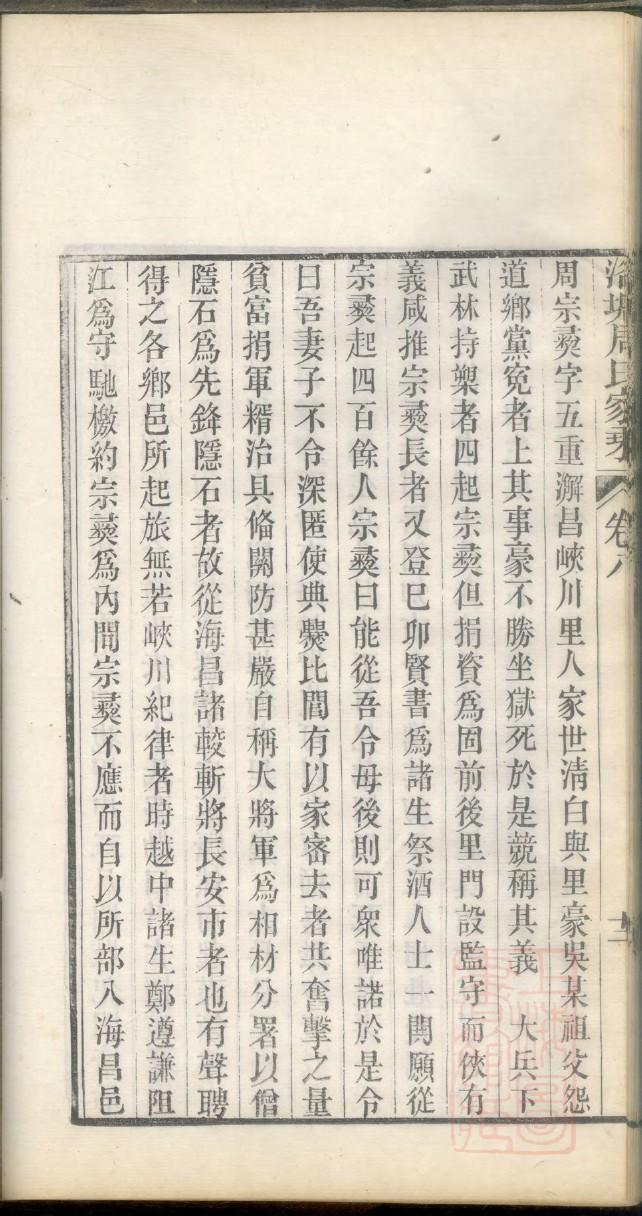 洛塘周氏家乘 卷八 十一
周宗彝字五重澥昌峽川里人家世淸白與里豪吳某祖父怨
道鄉黨寃者上其事豪不勝坐獄死於是競稱其義 大兵下
武林持槊者四起宗彝但捐資爲固前後里門設監守而俠有
義咸推宗彝長者又登巳卯賢書爲諸生祭酒人士一閧願從
宗彝起四百餘人宗彝曰能從吾令毋後則可衆唯諾於是令
曰吾妻子不令深匿使典爨比閭有以家審去者共奮擊之量
貧富捐軍糈治具俻關防甚嚴自稱大將軍爲相材分署以僧
隱石爲先鋒隱石者故從海昌諸較斬將長安市者也有聲聘
得之各鄉邑所起旅無若峽川紀律者時越中諸生鄭遵謙阻
江爲守馳檄約宗彝爲內閒宗彝不應而自以所部入海昌邑